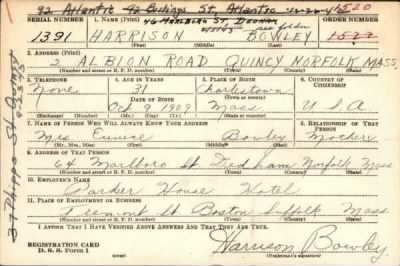 92 Atlantic 42 Billings St, Atlantic 11-22-46
46 MARLBORO ST. DEDHAM
1520
SERIAL NUMBER 1. NAME (Print) ORDER NUMBER
1391 HARRISON BOWLEY 1522
(First) (Middle) (Last)
2. ADDRESS (Print)
2 ALBION ROAD QUINCY NORFOLK MASS
(Number and street or R. F. D. number) (Town) (County) (State)
3. TELEPHONE 4. AGE IN YEARS 5. PLACE OF BIRTH 6. COUNTRY OF CITIZENSHIP
None 31 Charlestown
DATE OF BIRTH
Oct 9 1909 Mass U S A
(Exchange) (Number) (Mo.) (Day) (Yr.) (State or country)
7. NAME OF PERSON WHO WILL ALWAYS KNOW YOUR ADDRESS 8. RELATIONSHIP OF THAT PERSON
Mrs Eunice Bowley Mother
(Mr., Mrs., Miss) (First) (Middle) (Last)
9. ADDRESS OF THAT PERSON
64 Marlboro St Dedham Norfolk Mass
(Number and street or R. F. D. number) (Town) (County) (State)
10. EMPLOYER'S NAME
Parker House Hotel
11. PLACE OF EMPLOYMENT OR BUSINESS
Tremont St Boston Suffolk Mass
(Number and street or R. F. D. number) (Town) (County) (State)
I AFFIRM THAT I HAVE VERIFIED ABOVE ANSWERS AND THAT THEY ARE TRUE.
REGISTRATION CARD
D. S. S. Form 1
Harrison Bowley
(Registrant's signature)